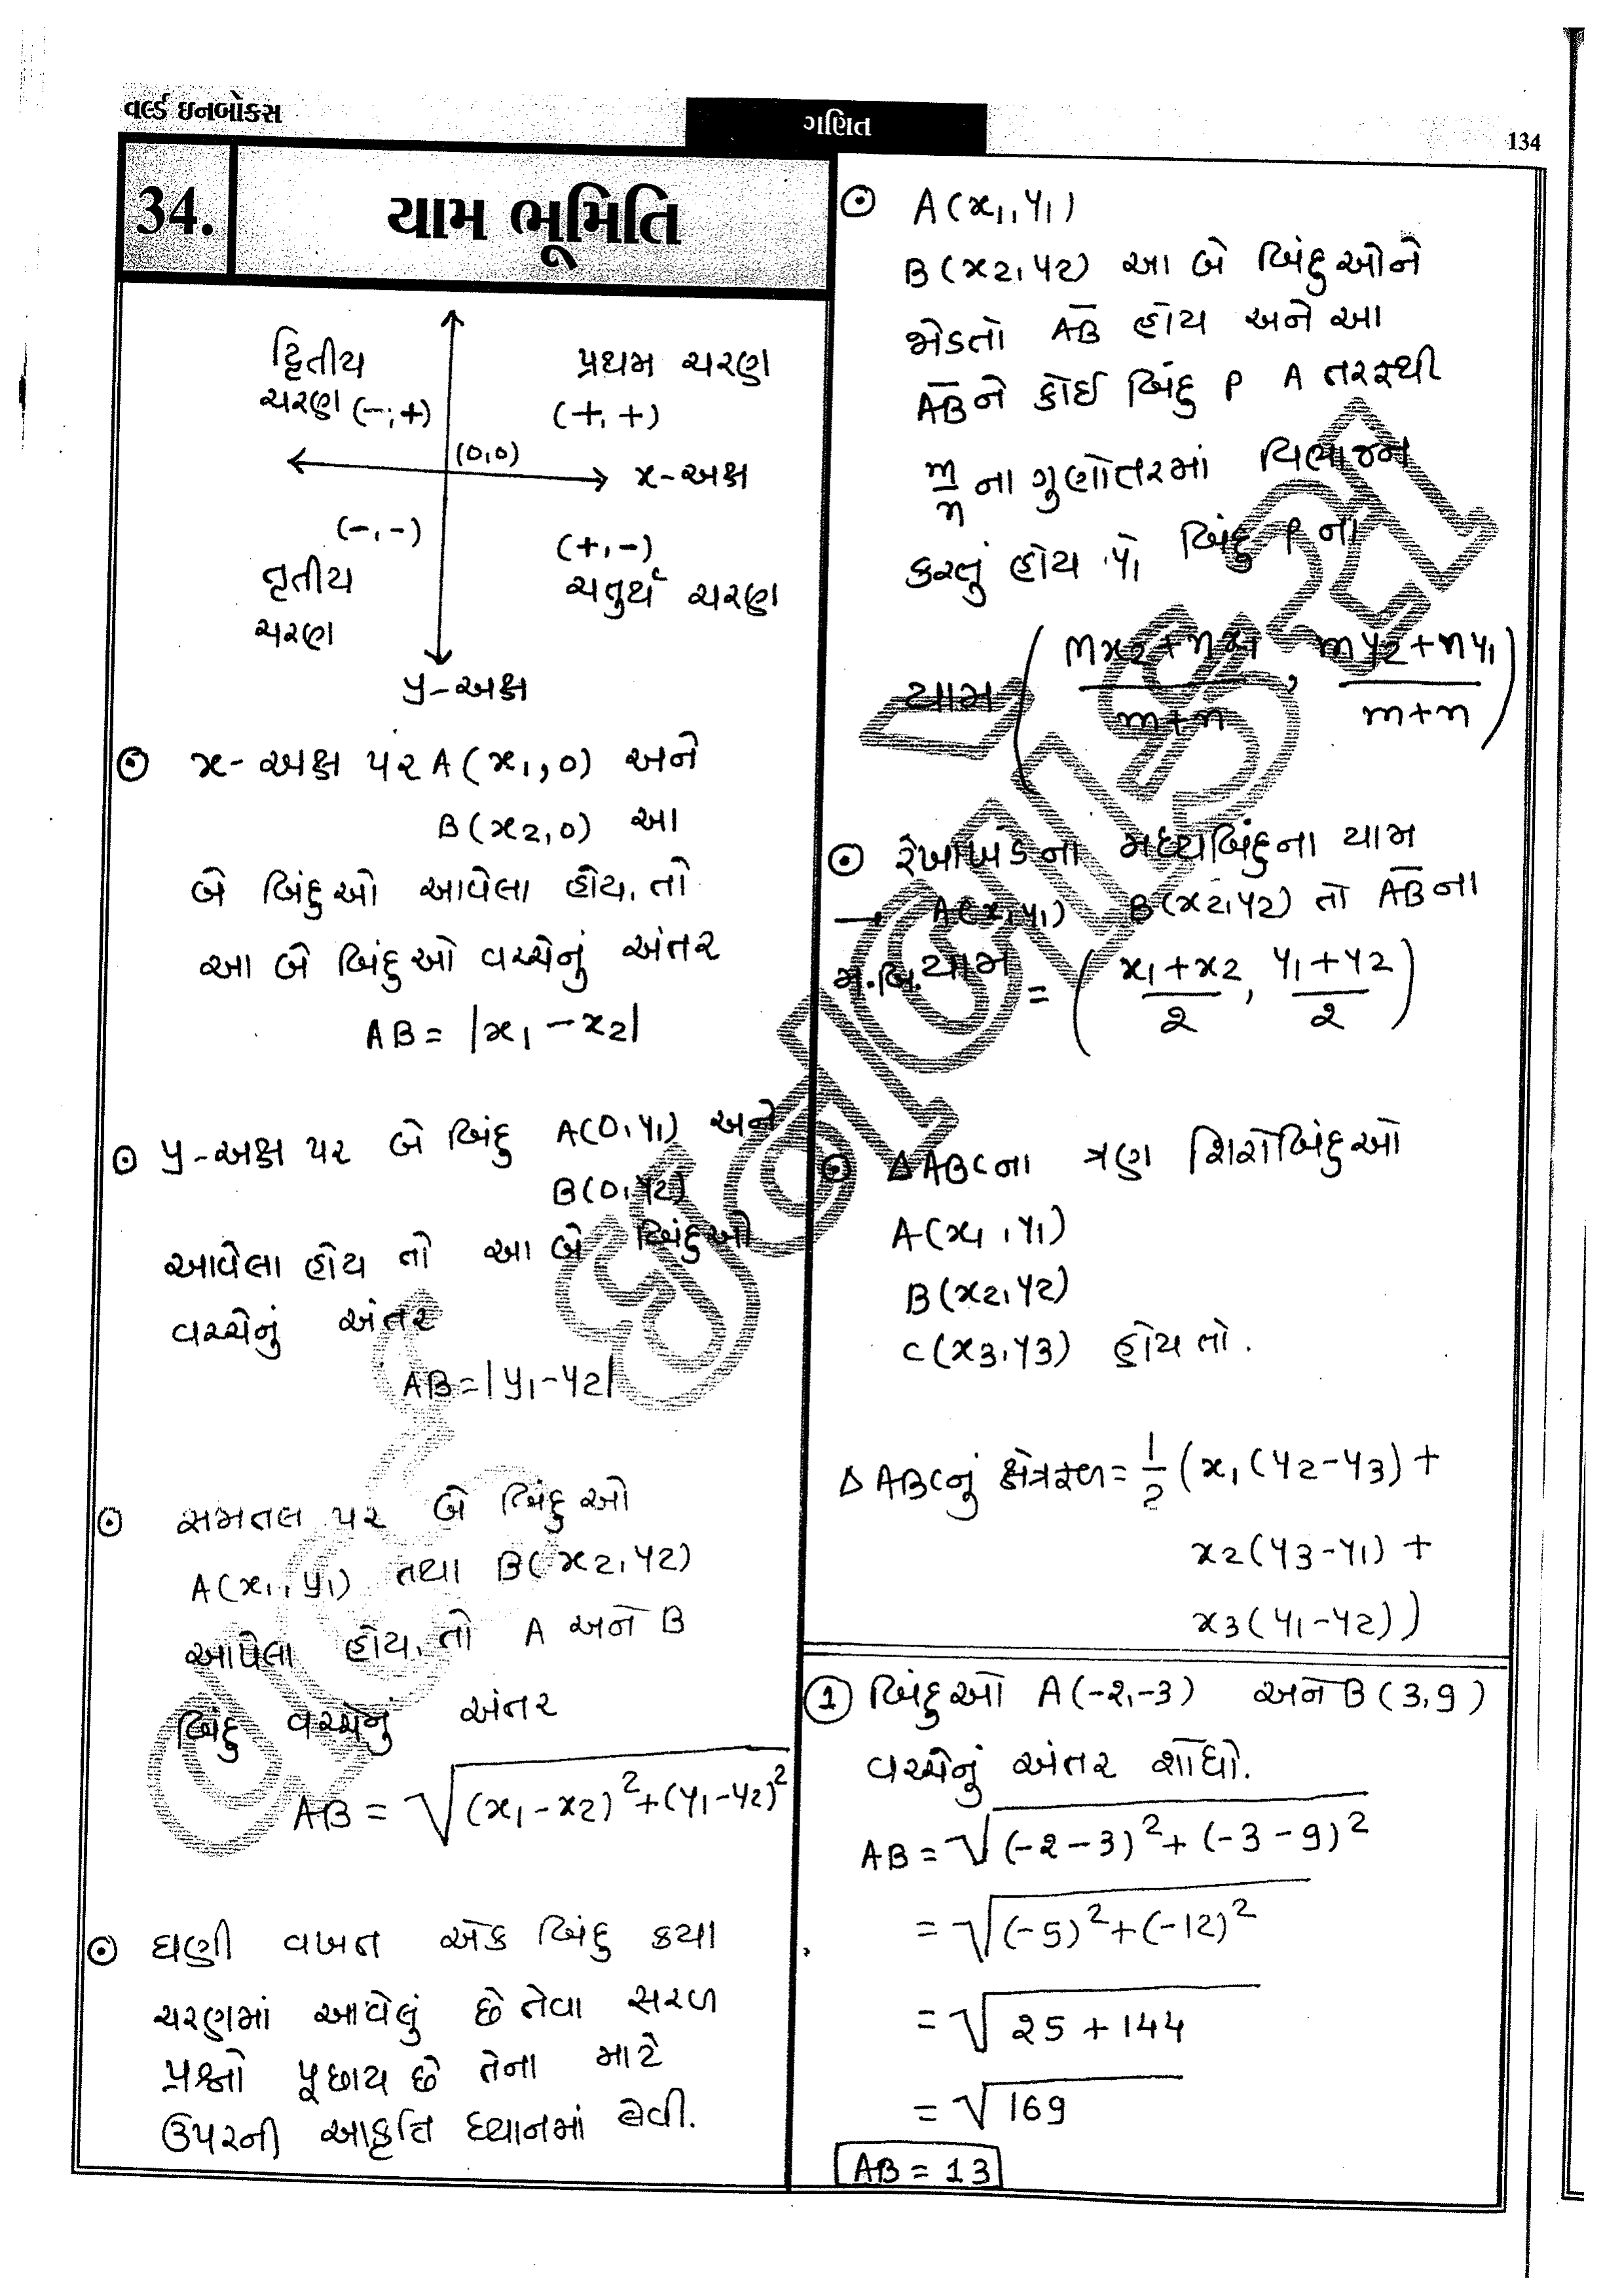 વર્લ્ડ ઇનબોક્સ
ગણિત
134
34.
યામ ભૂમિતિ
દ્વિતીય
ચરણ (-,+)
પ્રથમ ચરણ
(+,+)
(0,0)
x-અક્ષ
(-,-)
તૃતીય
ચરણ
(+,-)
ચતુર્થ ચરણ
y-અક્ષ
⊙ x-અક્ષ પર A(x₁,0) અને
B(x₂,0) આ
બે બિંદુઓ આવેલા હોય, તો
આ બે બિંદુઓ વચ્ચેનું અંતર
AB = |x₁ - x₂|
⊙ y-અક્ષ પર બે બિંદુ A(0,y₁) અને
B(0,y₂)
આવેલા હોય તો આ બે બિંદુઓ
વચ્ચેનું અંતર
AB = |y₁ - y₂|
⊙ સમતલ પર બે બિંદુઓ
A(x₁,y₁) તથા B(x₂,y₂)
આપેલા હોય, તો A અને B
બિંદુ વચ્ચેનું અંતર
AB = √((x₁-x₂)²+(y₁-y₂)²)
⊙ ઘણી વખત એક બિંદુ કયા
ચરણમાં આવેલું છે તેવા સરળ
પ્રશ્નો પૂછાય છે તેના માટે
ઉપરની આકૃતિ ધ્યાનમાં લેવી.
⊙ A(x₁,y₁)
B(x₂,y₂) આ બે બિંદુઓને
જોડતો A̅B̅ હોય અને આ
A̅B̅ને કોઈ બિંદુ P A તરફથી
m/n ના ગુણોતરમાં વિભાજન
કરતું હોય તો બિંદુ P ના
યામ ((mx₂+nx₁)/(m+n), (my₂+ny₁)/(m+n))
⊙ રેખાખંડના મધ્યબિંદુના યામ
→ A(x₁,y₁) B(x₂,y₂) તો A̅B̅ના
મ.બિ.યામ = ((x₁+x₂)/2, (y₁+y₂)/2)
⊙ ΔABCના ત્રણ શિરોબિંદુઓ
A(x₁,y₁)
B(x₂,y₂)
C(x₃,y₃) હોય તો.
ΔABCનું ક્ષેત્રફળ = 1/2 (x₁(y₂-y₃)+
x₂(y₃-y₁)+
x₃(y₁-y₂))
① બિંદુઓ A(-2,-3) અને B(3,9)
વચ્ચેનું અંતર શોધો.
AB = √((-2-3)²+(-3-9)²)
= √((-5)²+(-12)²)
= √(25+144)
= √169
AB = 13
વર્લ્ડ ઇનબોક્સ